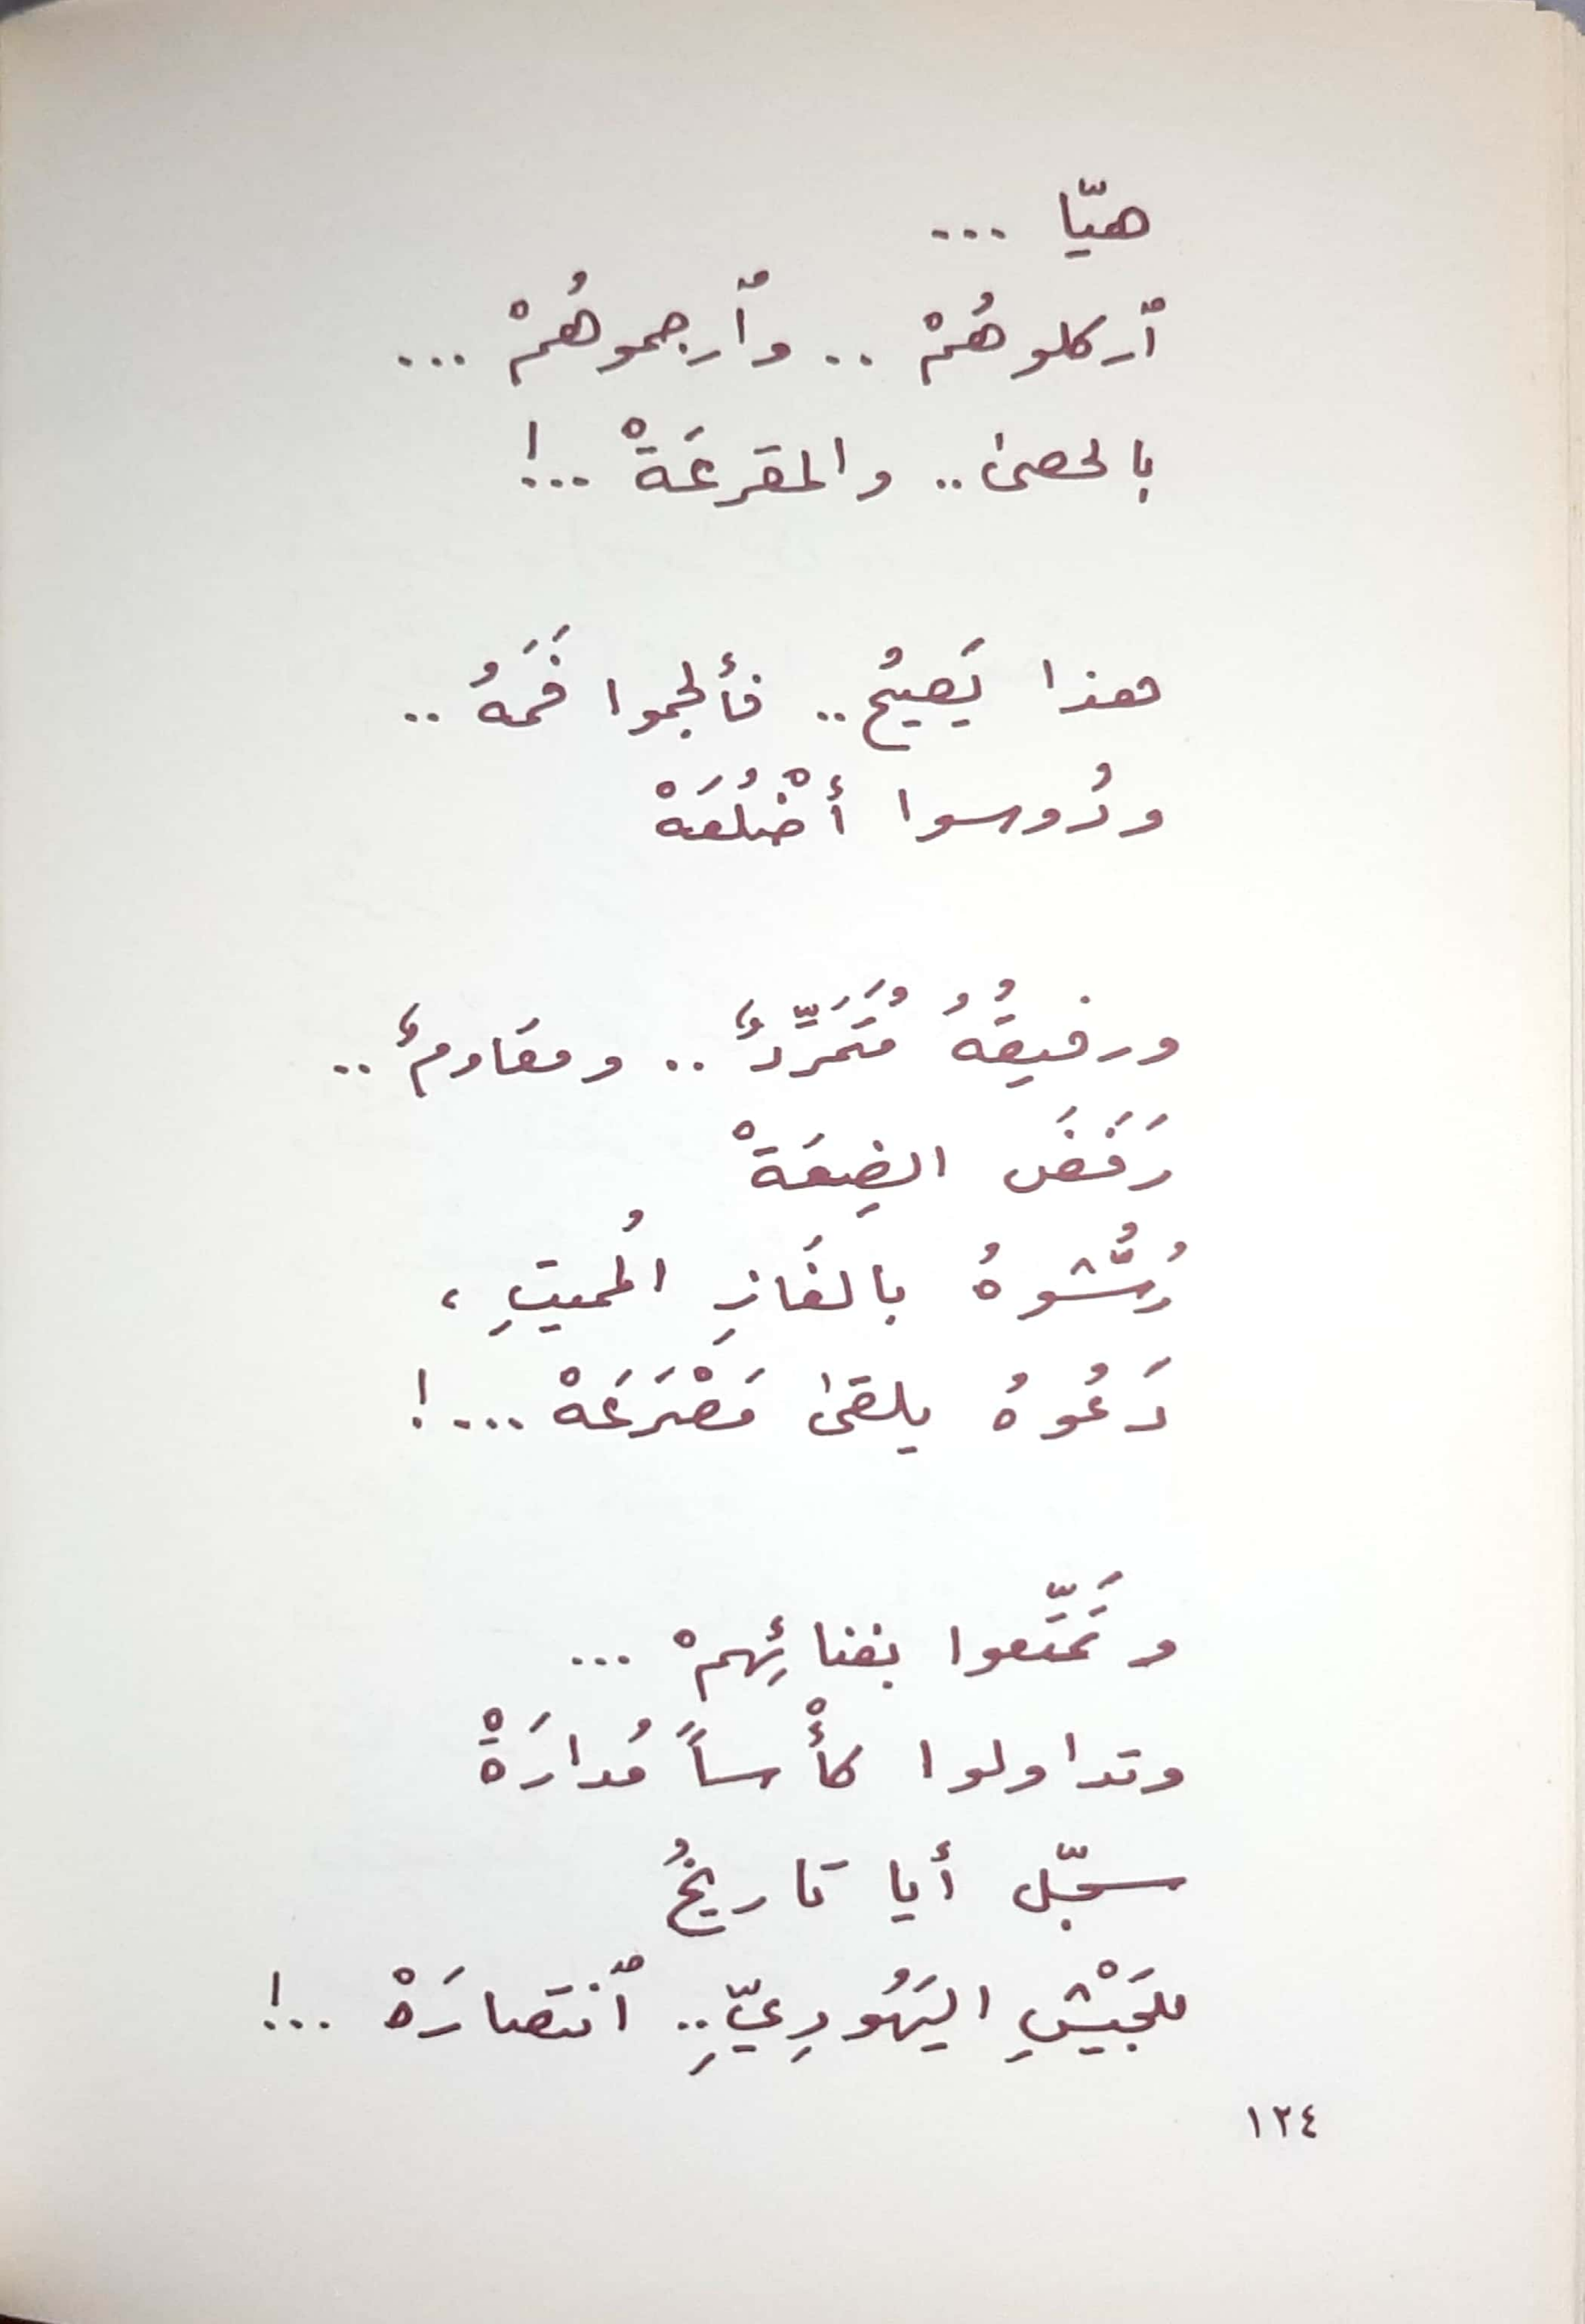 هيّا ...
ٱركلوهُمْ .. وٱرجموهُمْ ...
بالحصىٰ .. والمقرعَةْ ...!
هذا يَصيحُ .. فألجموا فَمَهُ ..
ودُوسوا أضْلُعَهْ
ورفيقُهُ مُتَمَرِّدٌ .. ومقَاومٌ ..
رَفَضَ الضِعَةْ
رُشُّوهُ بالغَازِ المُميتِ ،
دَعُوهُ يلقىٰ مَصْرَعَهْ ...!
وتَمَتَّعوا بفنائِهمْ ...
وتداولوا كأْساً مُدارَةْ
سجّل أيا تاريخُ
للجَيْشِ اليَهُودِيِّ .. ٱنتصارَهْ ...!
١٢٤